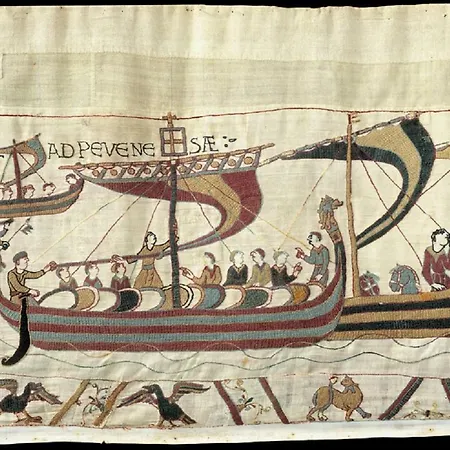 AD PEVENE SÆ :